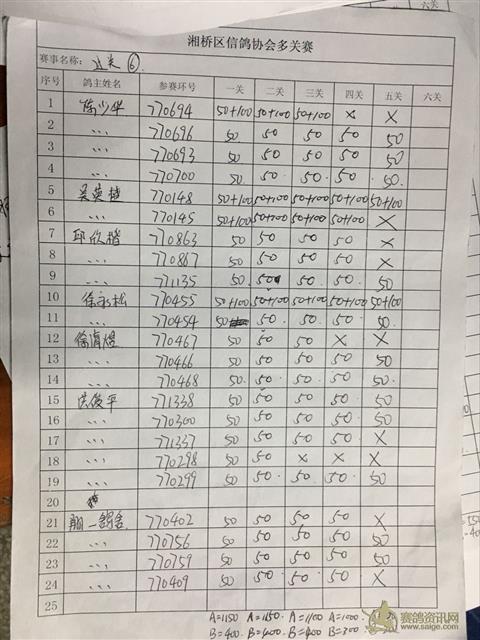 六关
湘桥区信鸽协会多关赛
赛事名称: 过关 ⑥.
序号 鸽主姓名 参赛环号 一关 二关 三关 四关 五关 六关
1 陈少华 770694 50+100 50+100 50+100 × ×
2 ... 770696 50 50 50 50 50
3 ... 770693 50 50 50 50 50
4 ... 770700 50 50 50 50 50
5 吴英 770148 50+100 50+100 50+100 50+100 50+100
6 ... 770145 50+100 50+100 50+100 50+100 ×
7 邱欣楷 770863 50 50 50 50 ×
8 ... 770867 50 50 50 50 ×
9 ... 771135 50 50 50 50 50
10 徐永松 770455 50+100 50+100 50+100 50+100 50+100
11 ... 770454 50 50 50 50 50
12 徐 煜 770467 50 50 50 × ×
13 ... 770466 50 50 50 50 50
14 ... 770468 50 50 50 50 50
15 洪俊平 771338 50 50 50 50 50
16 ... 770300 50 50 50 50 50
17 ... 771337 50 50 50 50 ×
18 ... 770298 50 50 × × ×
19 ... 770299 50 50 50 50 50
20
21 翔一鸽舍 770402 50 50 50 50 ×
22 ... 770756 50 50 50 50 50
23 ... 770759 50 50 50 50 50
24 ... 770409 50 50 50 50 ×
25
A=1150 A=1150 A=1100 A=1000
B=400 B=400 B=400 B=300
赛鸽资讯网
www.saige.com